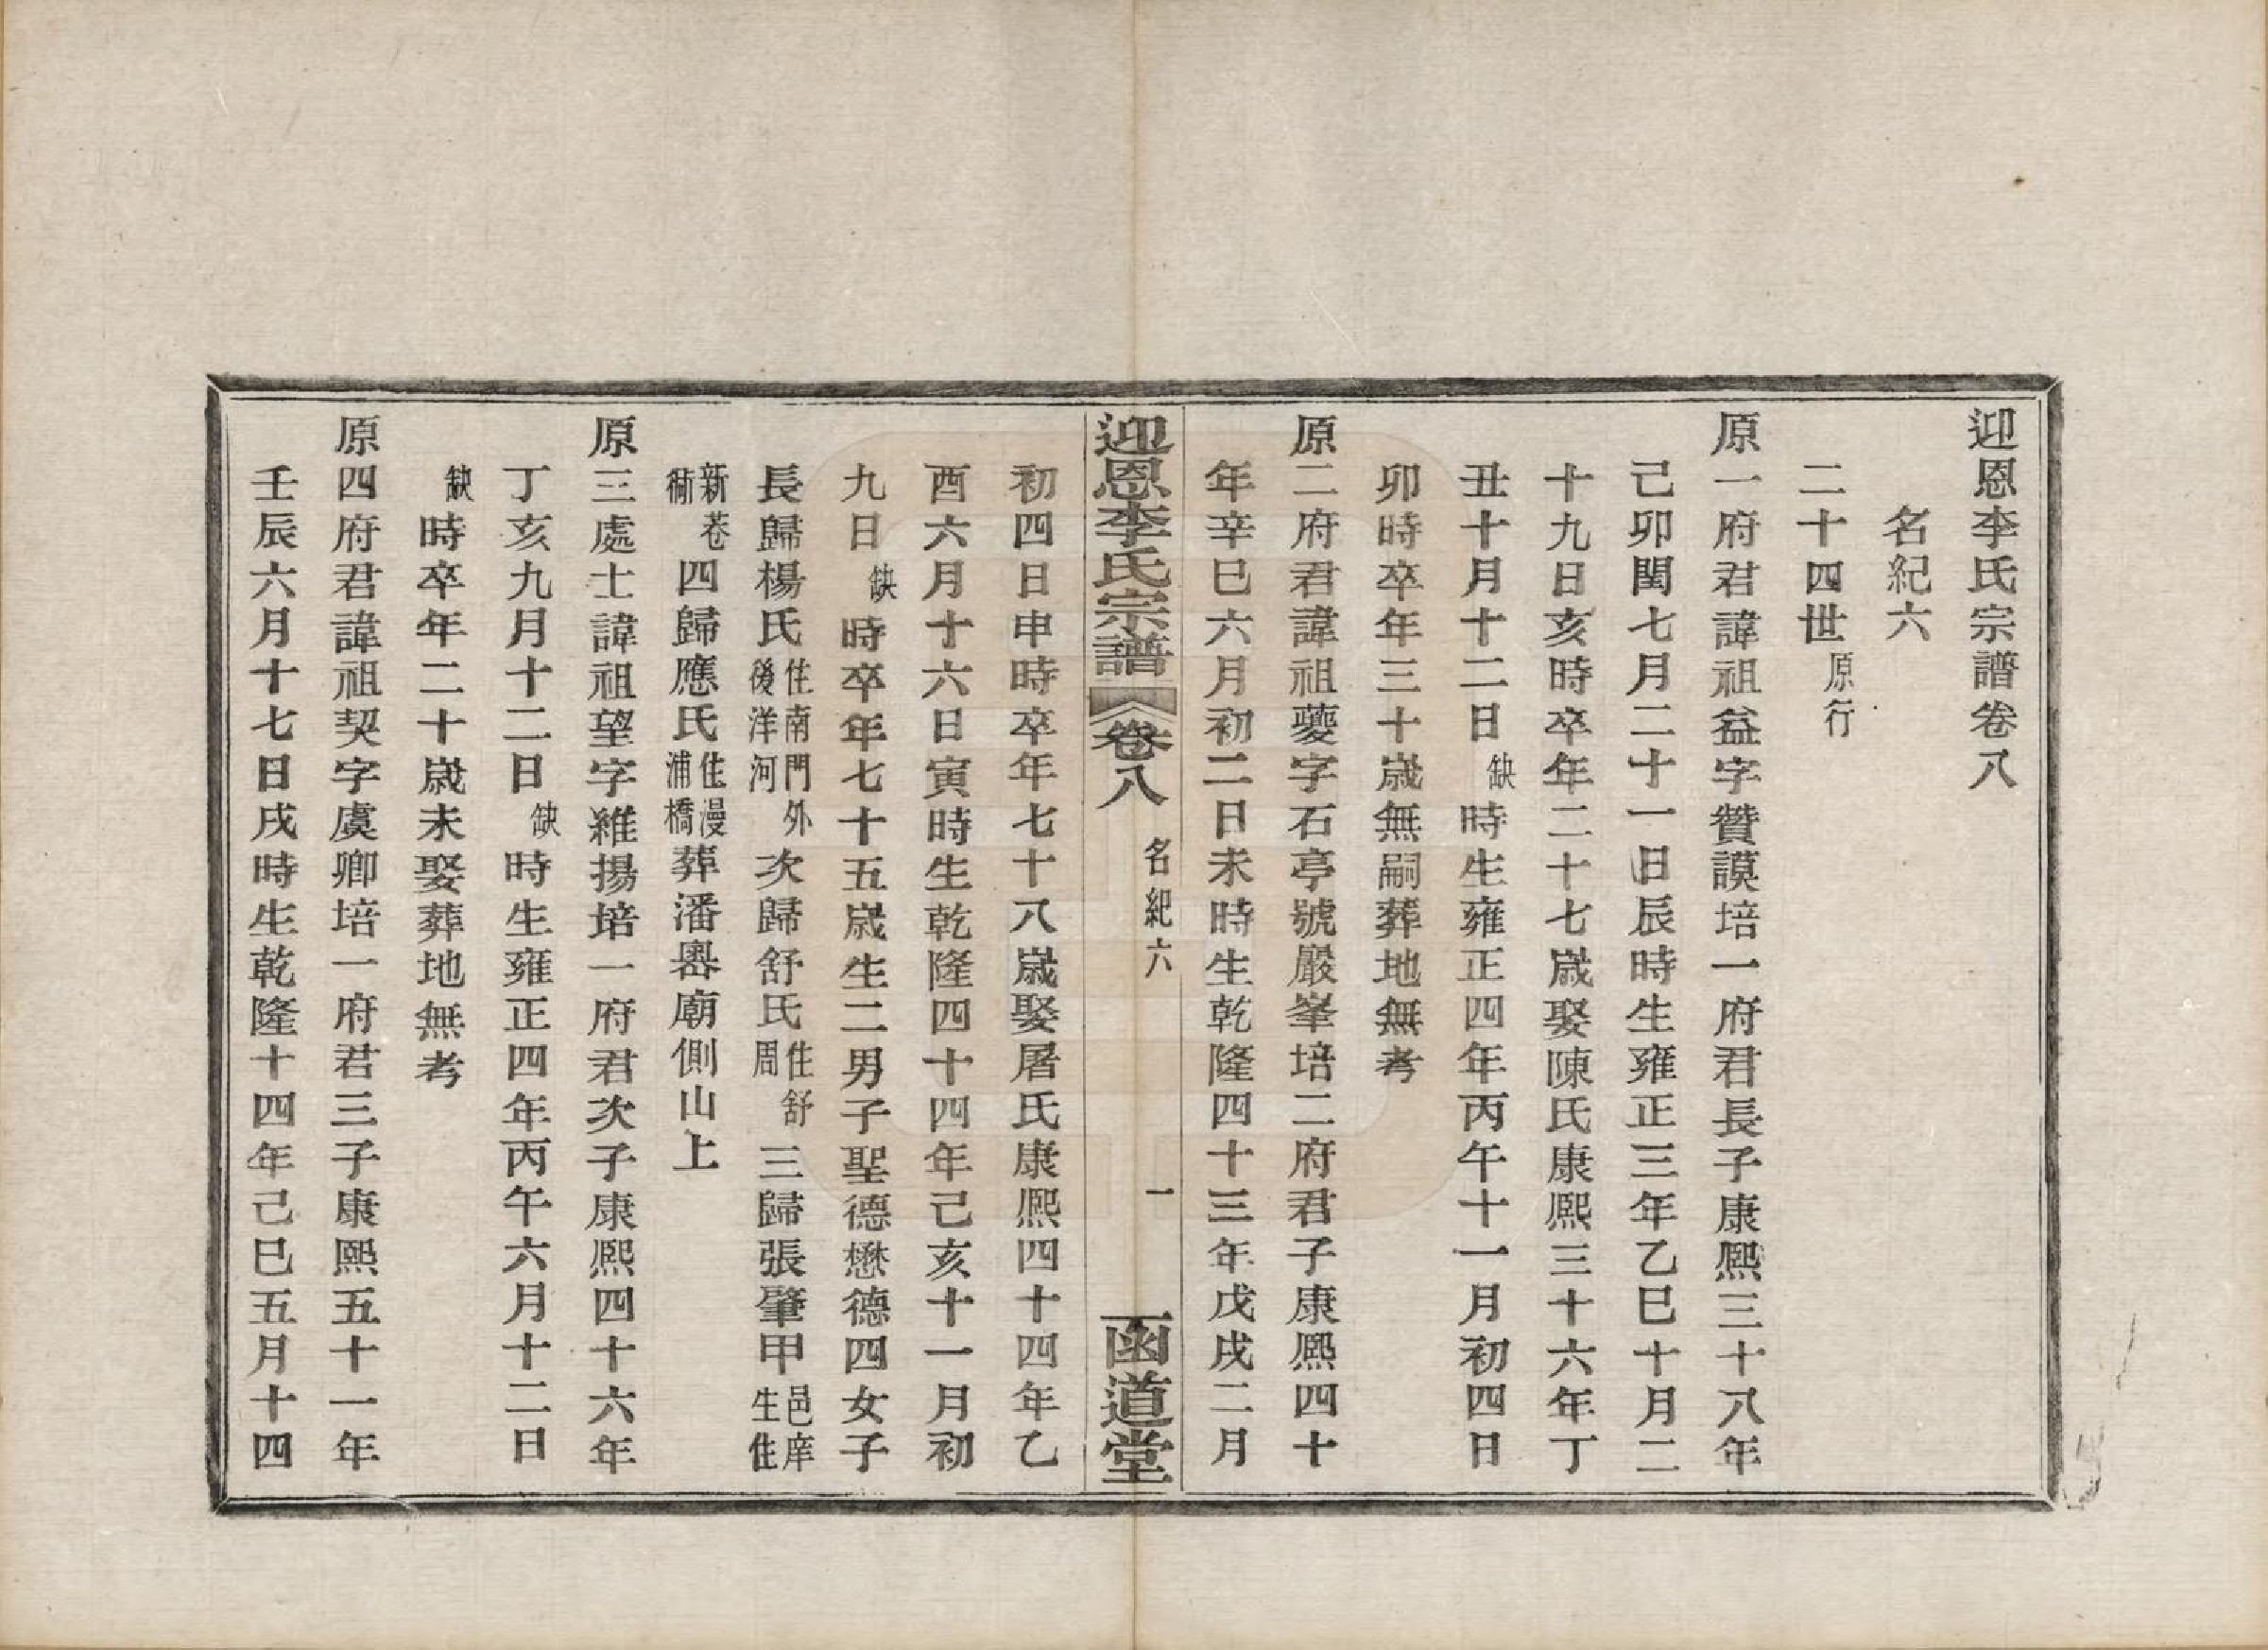 迎恩李氏宗譜卷八
名紀六
二十四世原行
原一府君諱祖益字贊謨培一府君長子康熙三十八年
己卯閏七月二十一日辰時生雍正三年乙巳十月二
十九日亥時卒年二十七歲娶陳氏康熙三十六年丁
丑十月十二日缺時生雍正四年丙午十一月初四日
卯時卒年三十歲無嗣葬地無考
原二府君諱祖夔字石亭號嚴峯培二府君子康熙四十
年辛巳六月初二日未時生乾隆四十三年戊戌二月
迎恩李氏宗譜 卷八 名紀六 一 函道堂
初四日申時卒年七十八歲娶屠氏康熙四十四年乙
酉六月十六日寅時生乾隆四十四年己亥十一月初
九日缺時卒年七十五歲生二男子聖德懋德四女子
長歸楊氏住南門外後洋河次歸舒氏住舒周三歸張肇甲邑庠生住
新巷衕四歸應氏住漫浦橋葬潘嶴廟側山上
原三處士諱祖望字維揚培一府君次子康熙四十六年
丁亥九月十二日缺時生雍正四年丙午六月十二日
缺時卒年二十歲未娶葬地無考
原四府君諱祖契字虞卿培一府君三子康熙五十一年
壬辰六月十七日戌時生乾隆十四年己巳五月十四